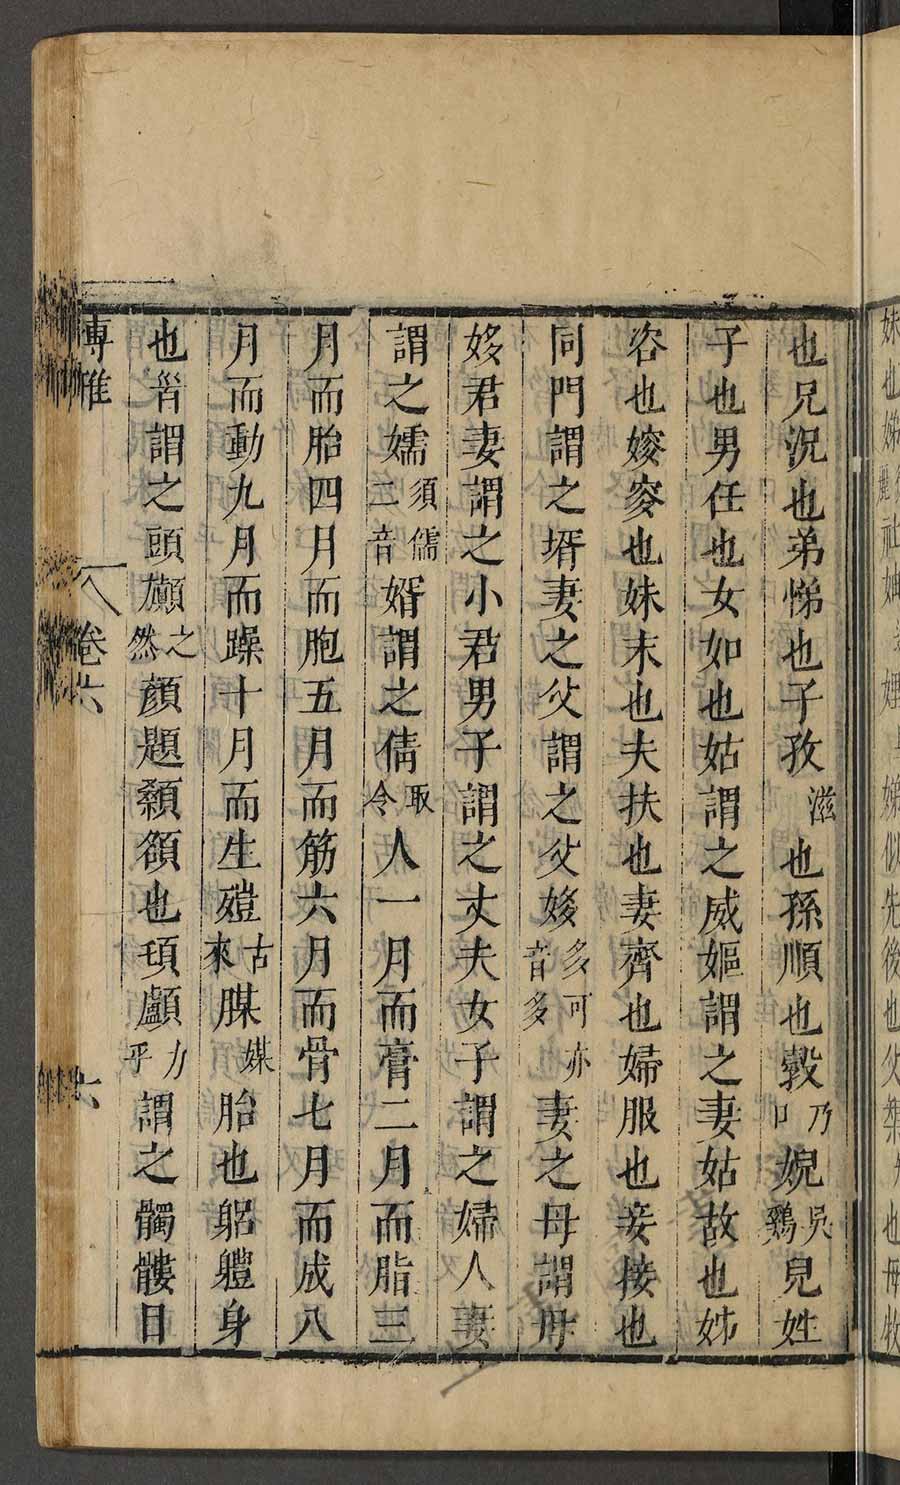 也兄況也弟悌也子孜滋也孫順也㝅乃口婗吳鷄兒姓
子也男任也女如也姑謂之威嫗謂之妻姑故也姊
咨也嫂叜也妹末也夫扶也妻齊也婦服也妾接也
同門謂之壻妻之父謂之父姼多可亦音多妻之母謂母
姼君妻謂之小君男子謂之丈夫女子謂之婦人妻
謂之嬬須儒二音婿謂之倩取令人一月而膏二月而脂三
月而胎四月而胞五月而筋六月而骨七月而成八
月而動九月而躁十月而生𣩊古來腜媒胎也躬軆身
也首謂之頭顱之然顏題顙頟也頊顱力乎謂之髑髏目
博雅 卷六 六